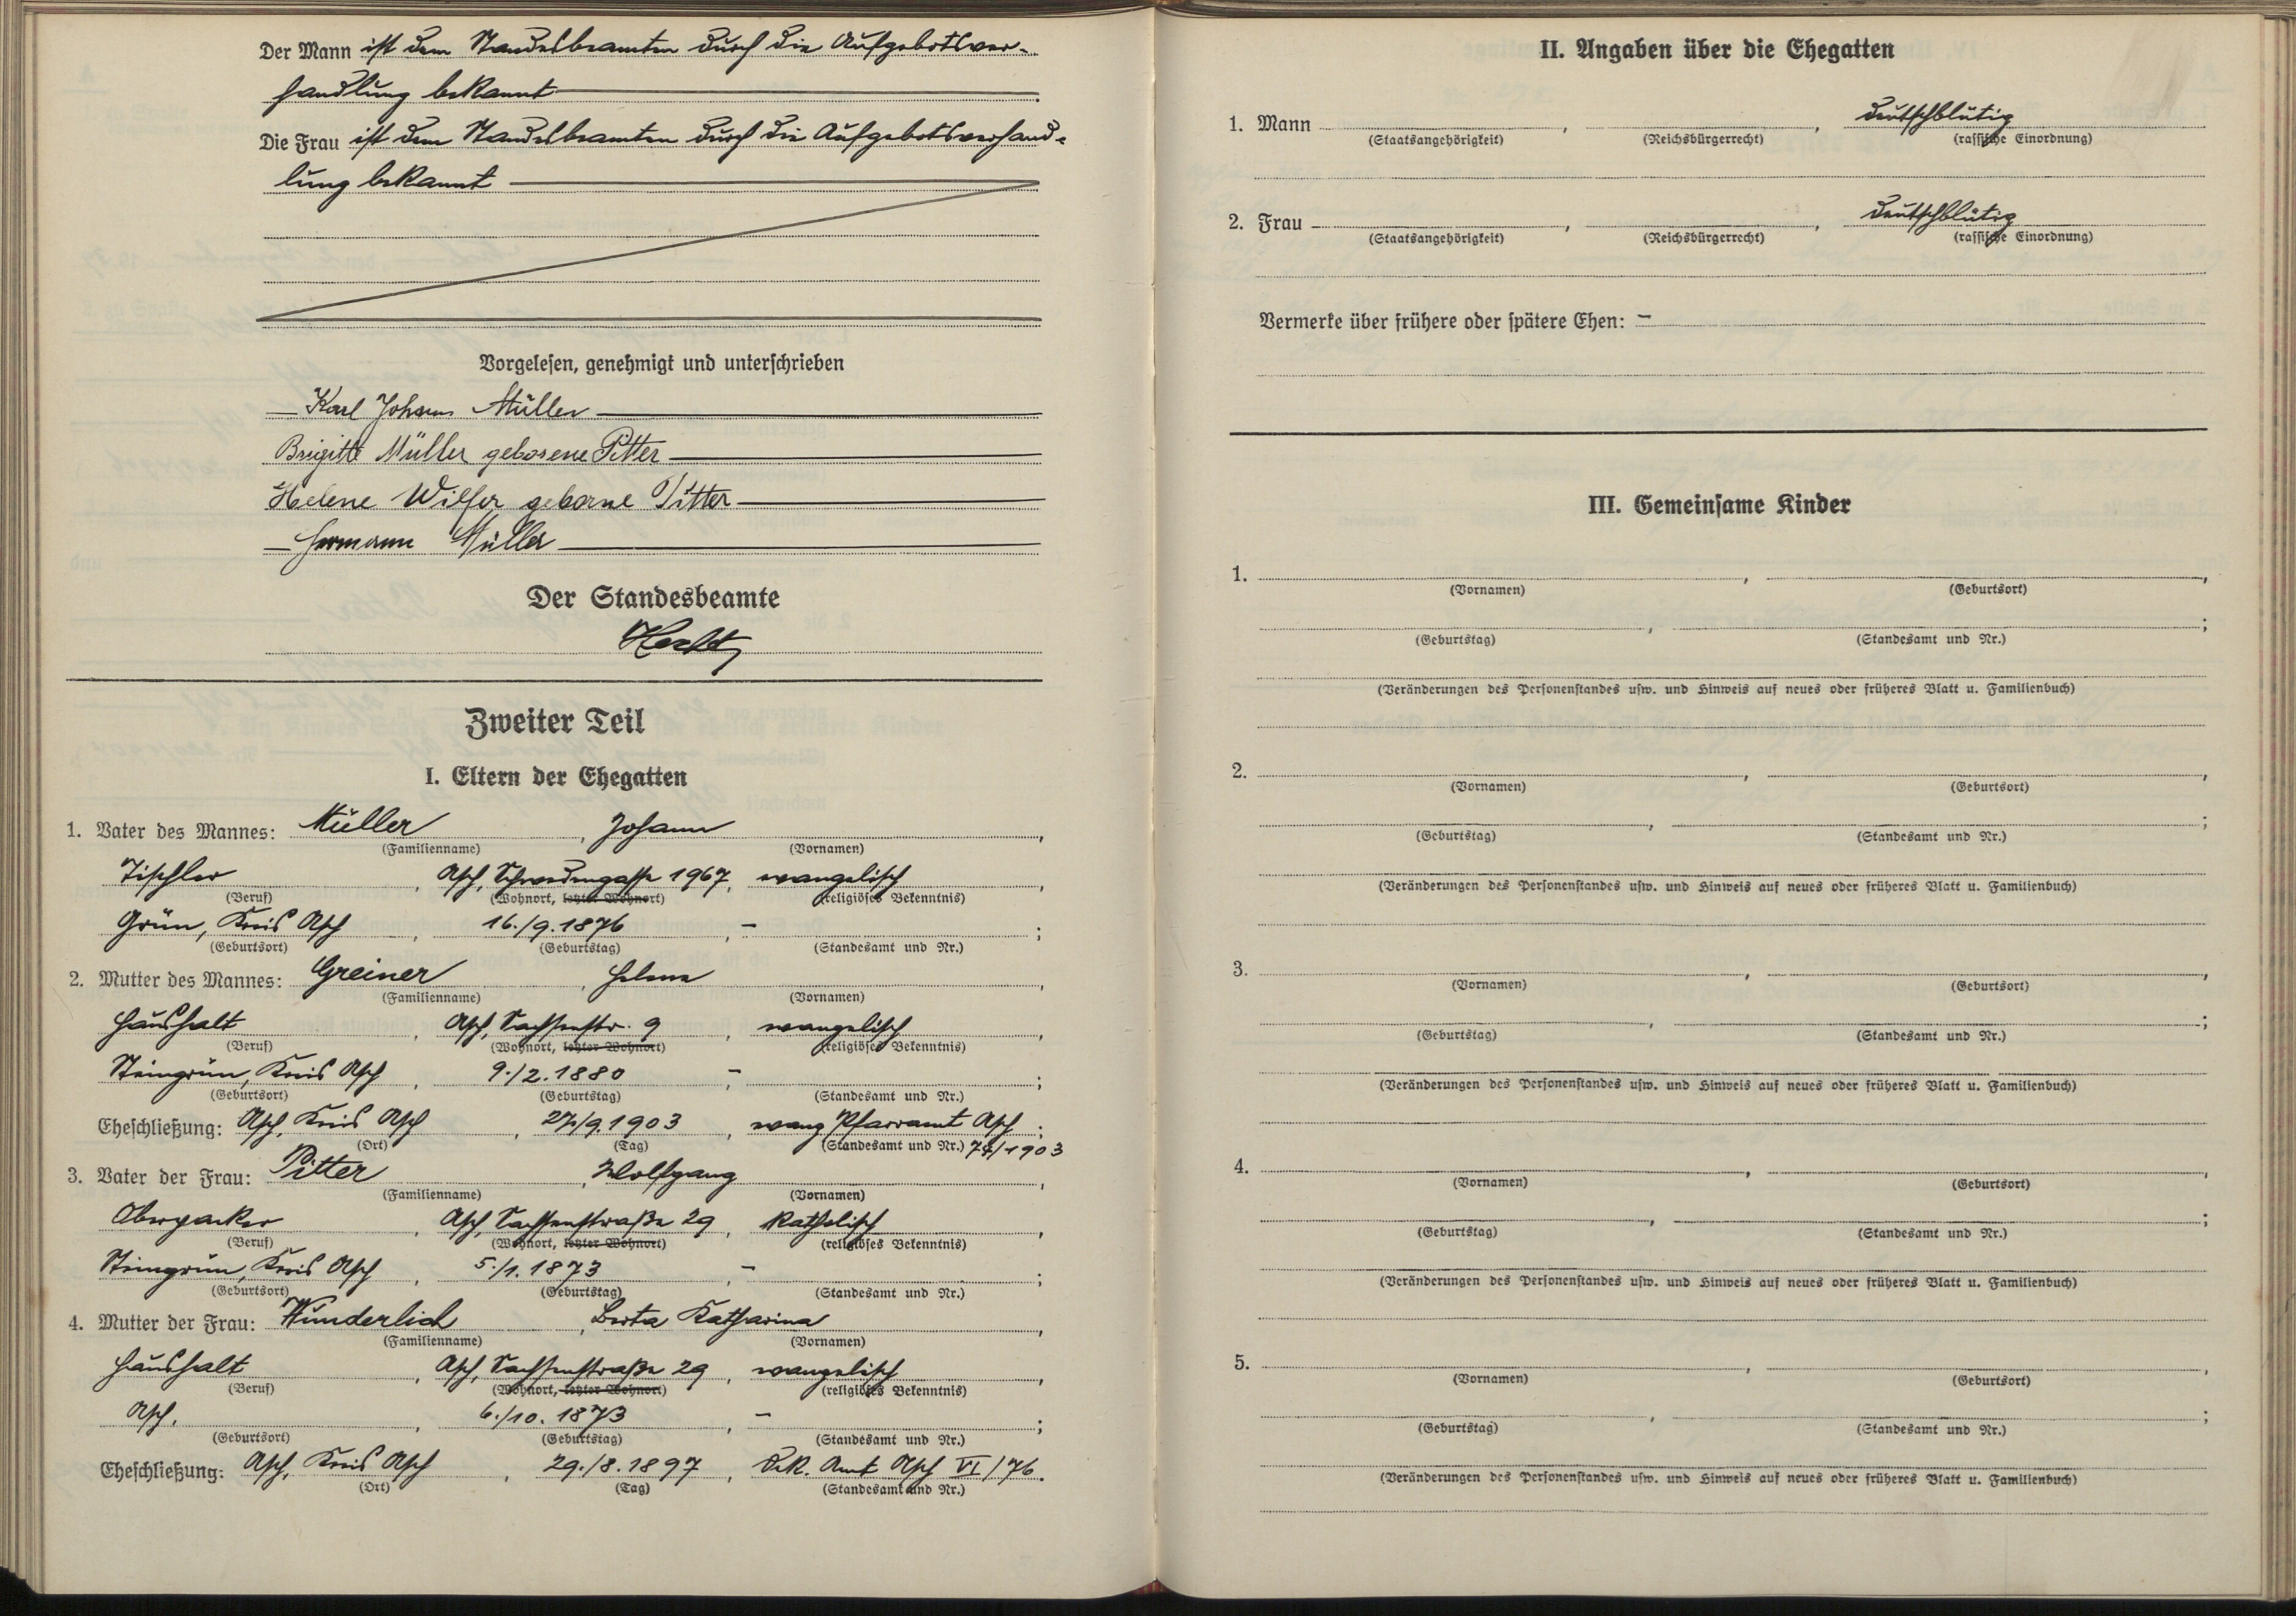 Der Mann ist dem Standesbeamten durch die Aufgebotsver-
handlung bekannt
Die Frau ist dem Standesbeamten durch die Aufgebotsverhand-
lung bekannt
Vorgelesen, genehmigt und unterschrieben
Karl Johann Müller
Brigitte Müller geborene Pitter
Helene Wilfer geborne Pitter
Hermann Müller
Der Standesbeamte
Zweiter Teil
I. Eltern der Ehegatten
1. Vater des Mannes: Müller, Johann,
(Familienname) (Vornamen)
Tischler, Asch, Schwedengasse 1967, evangelisch,
(Beruf) (Wohnort, letzter Wohnort) (religiöses Bekenntnis)
Grün, Kreis Asch, 16./9.1876, - ;
(Geburtsort) (Geburtstag) (Standesamt und Nr.)
2. Mutter des Mannes: Greiner, Helene,
(Familienname) (Vornamen)
Haushalt, Asch, Sachsenstr. 9, evangelisch,
(Beruf) (Wohnort, letzter Wohnort) (religiöses Bekenntnis)
Steingrün, Kreis Asch, 9./2.1880, - ;
(Geburtsort) (Geburtstag) (Standesamt und Nr.)
Eheschließung: Asch, Kreis Asch, 27./9.1903, evang Pfarramt Asch ;
(Ort) (Tag) (Standesamt und Nr.) 74/1903
3. Vater der Frau: Pitter, Wolfgang,
(Familienname) (Vornamen)
Oberpacker, Asch, Sachsenstraße 29, katholisch,
(Beruf) (Wohnort, letzter Wohnort) (religiöses Bekenntnis)
Steingrün, Kreis Asch, 5./1.1873, - ;
(Geburtsort) (Geburtstag) (Standesamt und Nr.)
4. Mutter der Frau: Wunderlich, Berta Katharina,
(Familienname) (Vornamen)
Haushalt, Asch, Sachsenstraße 29, evangelisch,
(Beruf) (Wohnort, letzter Wohnort) (religiöses Bekenntnis)
Asch, 6./10.1873, - ;
(Geburtsort) (Geburtstag) (Standesamt und Nr.)
Eheschließung: Asch, Kreis Asch, 29./8.1897, Dek. Amt Asch VI/76.
(Ort) (Tag) (Standesamt und Nr.)
II. Angaben über die Ehegatten
1. Mann , , deutschblütig
(Staatsangehörigkeit) (Reichsbürgerrecht) (rassische Einordnung)
2. Frau , , deutschblütig
(Staatsangehörigkeit) (Reichsbürgerrecht) (rassische Einordnung)
Vermerke über frühere oder spätere Ehen: -
III. Gemeinsame Kinder
1. , ,
(Vornamen) (Geburtsort)
, ;
(Geburtstag) (Standesamt und Nr.)
(Veränderungen des Personenstandes usw. und Hinweis auf neues oder früheres Blatt u. Familienbuch)
2. , ,
(Vornamen) (Geburtsort)
, ;
(Geburtstag) (Standesamt und Nr.)
(Veränderungen des Personenstandes usw. und Hinweis auf neues oder früheres Blatt u. Familienbuch)
3. , ,
(Vornamen) (Geburtsort)
, ;
(Geburtstag) (Standesamt und Nr.)
(Veränderungen des Personenstandes usw. und Hinweis auf neues oder früheres Blatt u. Familienbuch)
4. , ,
(Vornamen) (Geburtsort)
, ;
(Geburtstag) (Standesamt und Nr.)
(Veränderungen des Personenstandes usw. und Hinweis auf neues oder früheres Blatt u. Familienbuch)
5. , ,
(Vornamen) (Geburtsort)
, ;
(Geburtstag) (Standesamt und Nr.)
(Veränderungen des Personenstandes usw. und Hinweis auf neues oder früheres Blatt u. Familienbuch)